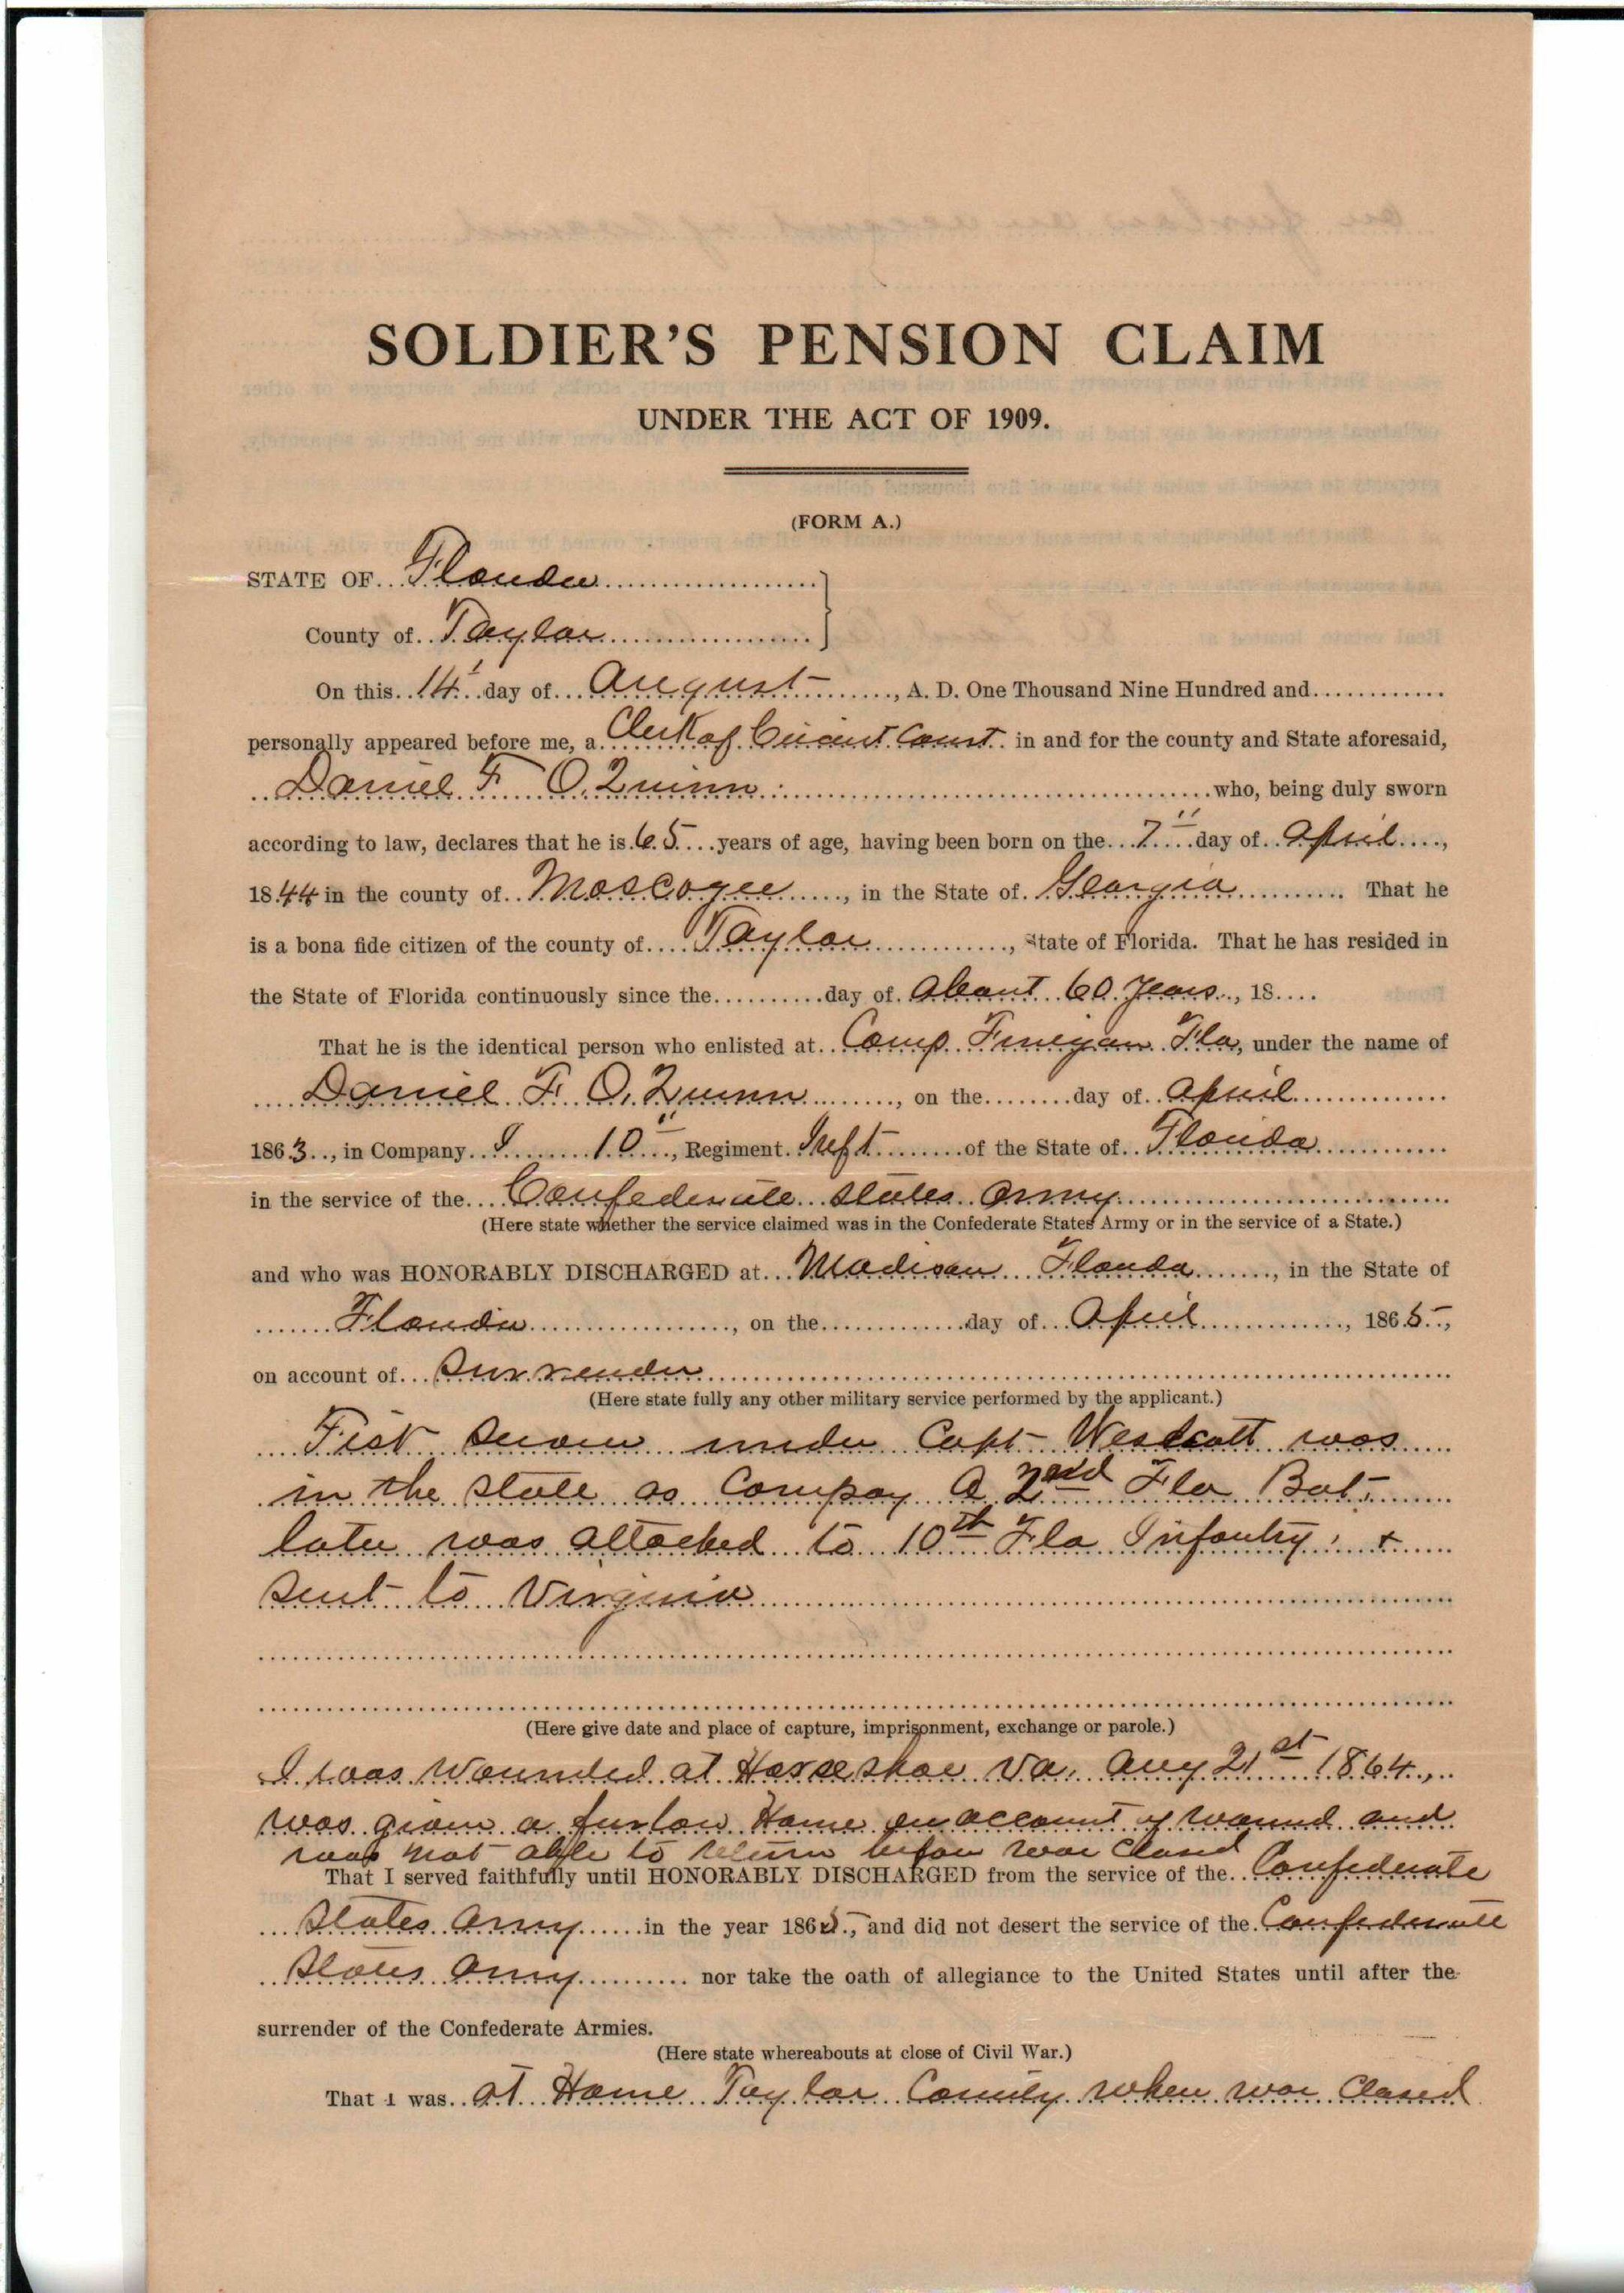 SOLDIER'S PENSION CLAIM
UNDER THE ACT OF 1909.
(FORM A.)
STATE OF Florida
County of Taylor
On this 14 day of August, A. D. One Thousand Nine Hundred and
personally appeared before me, a Clerk of Circuit Court in and for the county and State aforesaid,
Daniel F O. Quinn who, being duly sworn
according to law, declares that he is 65 years of age, having been born on the 7" day of April,
1844 in the county of Moscogee, in the State of Georgia. That he
is a bona fide citizen of the county of Taylor, State of Florida. That he has resided in
the State of Florida continuously since the day of About 60 Years, 18
That he is the identical person who enlisted at Camp Finegan Fla, under the name of
Daniel F. O. Quinn, on the day of April
1863, in Company I 10", Regiment Inft of the State of Florida
in the service of the Confederate States Army
(Here state whether the service claimed was in the Confederate States Army or in the service of a State.)
and who was HONORABLY DISCHARGED at Madison Florida, in the State of
Florida, on the day of April, 1865,
on account of Surrender
(Here state fully any other military service performed by the applicant.)
Fist under Capt Westcott was
in the state as Compay A 2nd Fla Bat.
later was attached to 10th Fla Infantry. +
sent to Virginia
(Here give date and place of capture, imprisonment, exchange or parole.)
I was wounded at Horse shoe Va. Aug 21st 1864,
was given a furlow Home on account of wound and
was not able to return before war closed
That I served faithfully until HONORABLY DISCHARGED from the service of the Confederate
States Army in the year 1865, and did not desert the service of the Confederate
States Army nor take the oath of allegiance to the United States until after the
surrender of the Confederate Armies.
(Here state whereabouts at close of Civil War.)
That I was at Home Taylor County when war closed